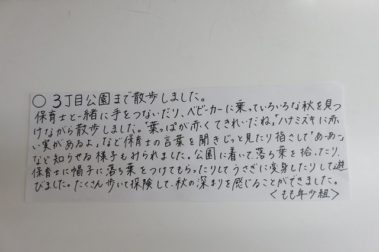 ○3丁目公園まで散歩しました。
保育士と一緒に手をつないだり、ベビーカーに乗っていろいろな秋を見つ
けながら散歩しました。“葉っぱが赤くてきれいだね。”“ハナミズキに赤
い実があるよ。”など保育士の言葉を聞きじっと見たり指さして“あーあー”
など知らせる様子もみられました。公園に着いて落ち葉を拾ったり、
保育士に帽子に落ち葉をつけてもらったりしてうさぎに変身したりして遊
びました。たくさん歩いて探険して、秋の深まりを感じることができました。
<もも年少組>